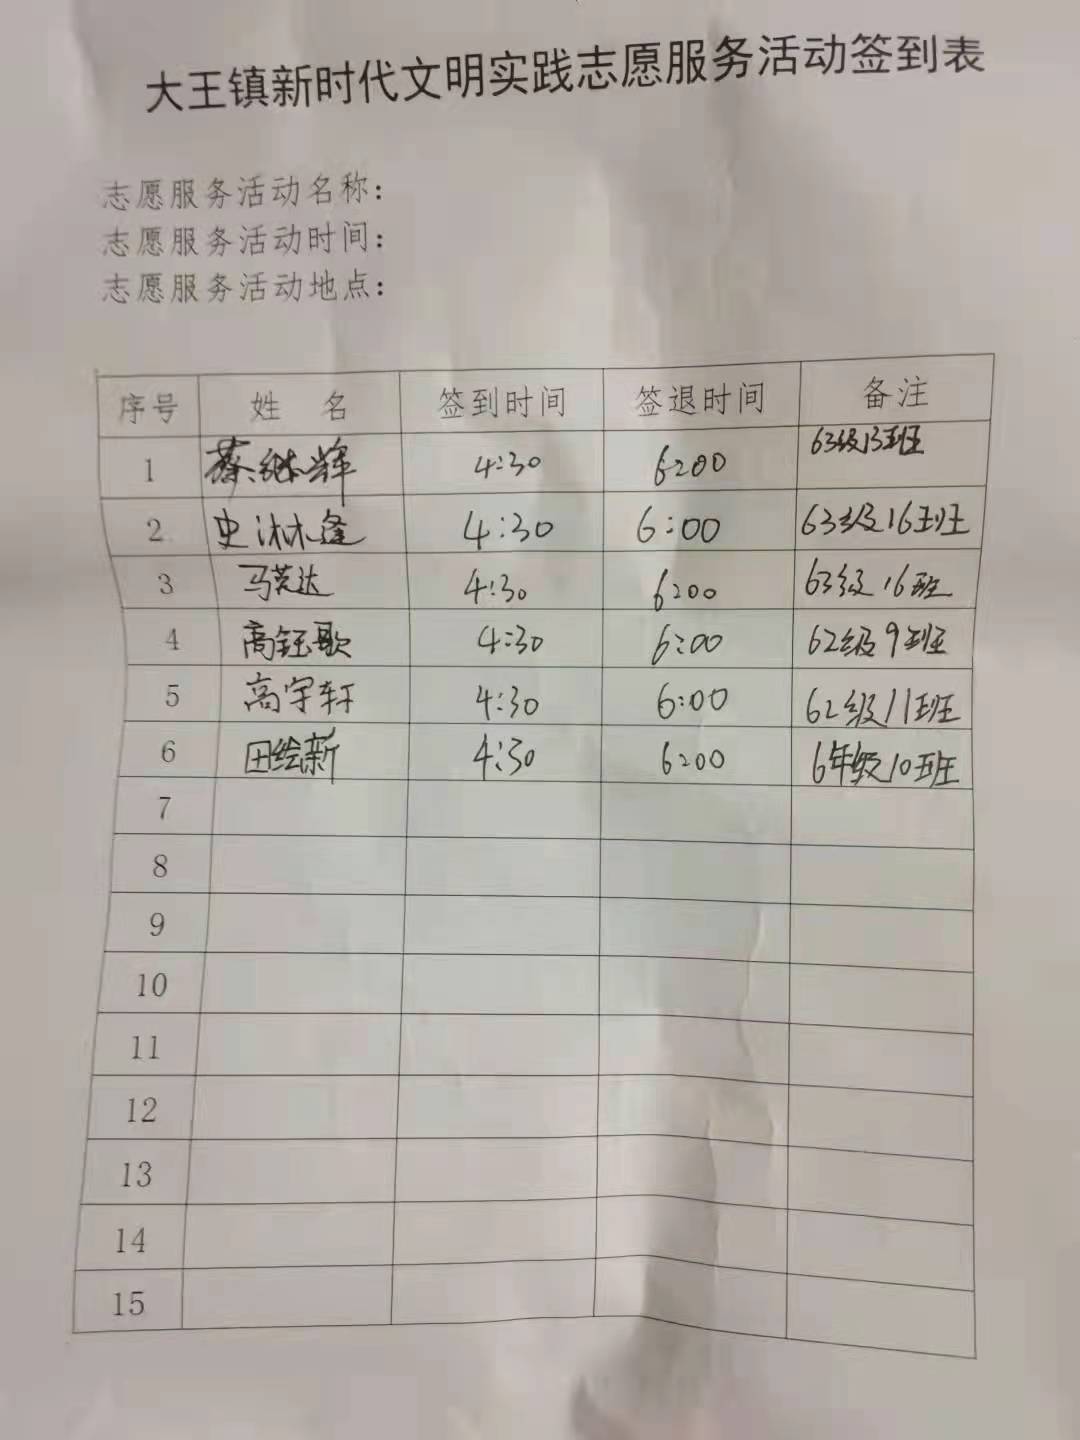 大王镇新时代文明实践志愿服务活动签到表
志愿服务活动名称：
志愿服务活动时间：
志愿服务活动地点：
序号 姓 名 签到时间 签退时间 备注
1 蔡继辉 4:30 6:00 63级13班
2 史沐逢 4:30 6:00 63级16班
3 马艺达 4:30 6:00 63级16班
4 高钰歌 4:30 6:00 62级9班
5 高宇轩 4:30 6:00 62级11班
6 田绘新 4:30 6:00 6年级10班
7
8
9
10
11
12
13
14
15